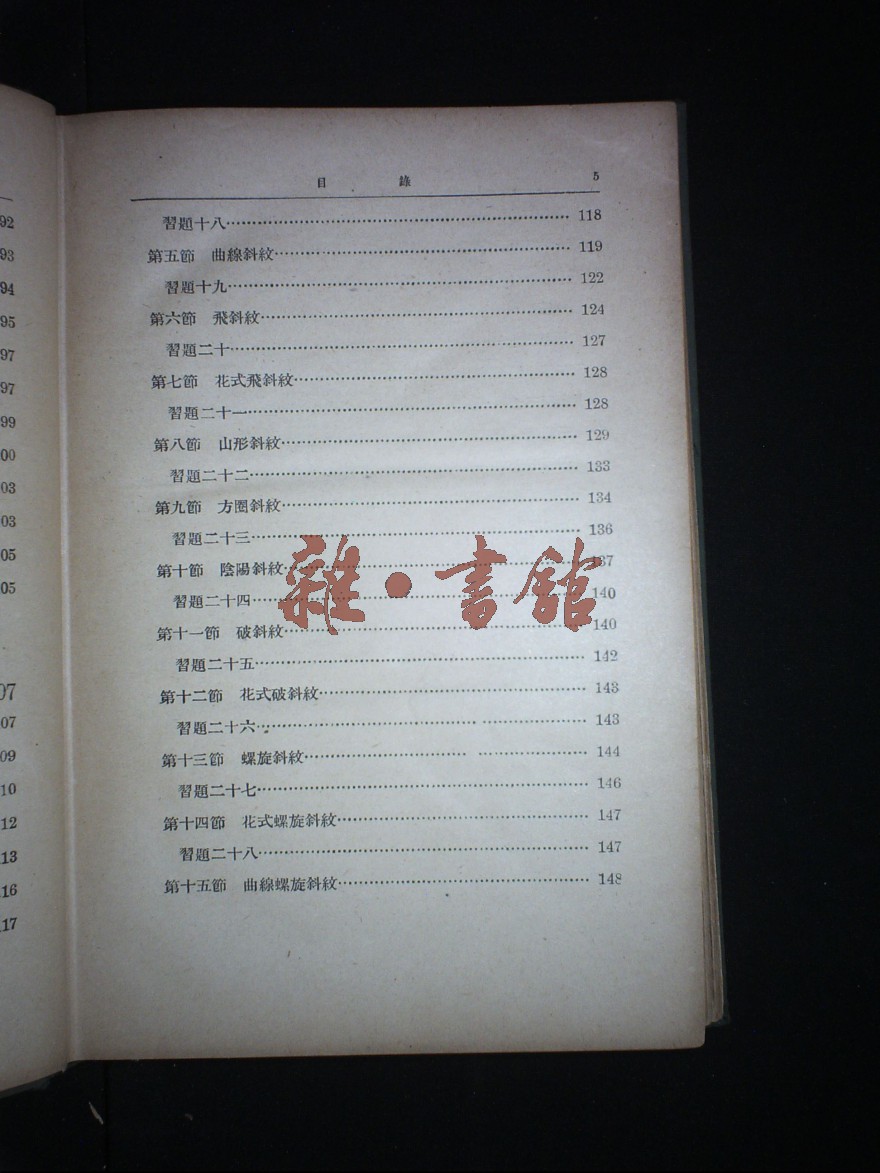 92
93
94
95
97
97
99
00
03
03
05
05
07
07
09
10
12
13
16
17
目 錄 5
習題十八 118
第五節 曲線斜紋 119
習題十九 122
第六節 飛斜紋 124
習題二十 127
第七節 花式飛斜紋 128
習題二十一 128
第八節 山形斜紋 129
習題二十二 133
第九節 方圈斜紋 134
習題二十三 136
第十節 陰陽斜紋 137
習題二十四 140
第十一節 破斜紋 140
習題二十五 142
第十二節 花式破斜紋 143
習題二十六 143
第十三節 螺旋斜紋 144
習題二十七 146
第十四節 花式螺旋斜紋 147
習題二十八 147
第十五節 曲線螺旋斜紋 148
雜·書館